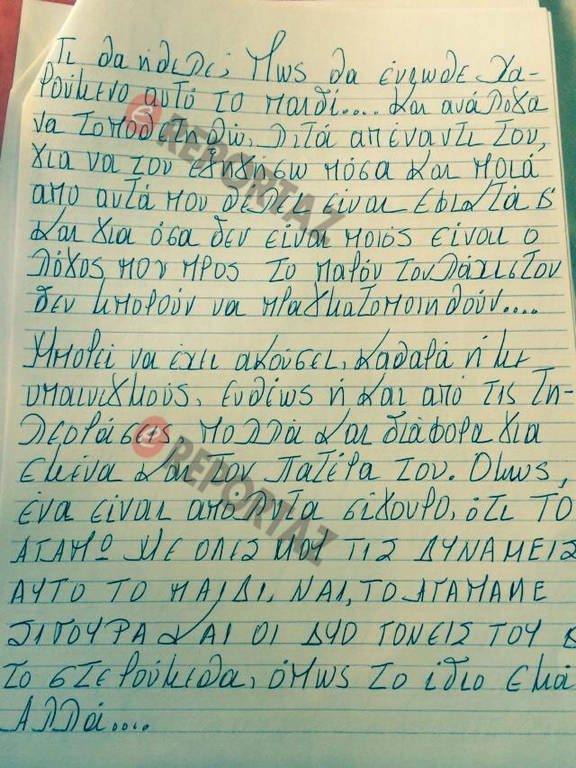 Τι θα ήθελε; Πως θα ένιωθε χα-
ρούμενο αυτό το παιδί.... και ανάλογα
να τοποθετηθώ, λιτά απέναντι του,
για να του εξηγήσω πόσα και ποιά
απο αυτά που θέλει είναι εφικτά &
και για όσα δεν είναι ποιός είναι ο
λόγος που προς το παρόν τουλάχιστον
δεν μπορούν να πραγματοποιηθούν....
Μπορεί να έχει ακούσει, καθαρά ή με
υπαινιγμούς, ευθέως ή και από τις τη-
λεοράσεις πολλά και διάφορα για
εμένα και τον πατέρα του. Όμως,
ένα είναι απόλυτα σίγουρο, ότι ΤΟ
ΑΓΑΠΩ ΜΕ ΟΛΕΣ ΜΟΥ ΤΙΣ ΔΥΝΑΜΕΙΣ
ΑΥΤΟ ΤΟ ΠΑΙΔΙ, ΝΑΙ, ΤΟ ΑΓΑΠΑΜΕ
ΣΙΓΟΥΡΑ ΚΑΙ ΟΙ ΔΥΟ ΓΟΝΕΙΣ ΤΟΥ &
το στερούμεθα, όμως το ίδιο εμά
Αλλά....
REPORTAZ
REPORTAZ